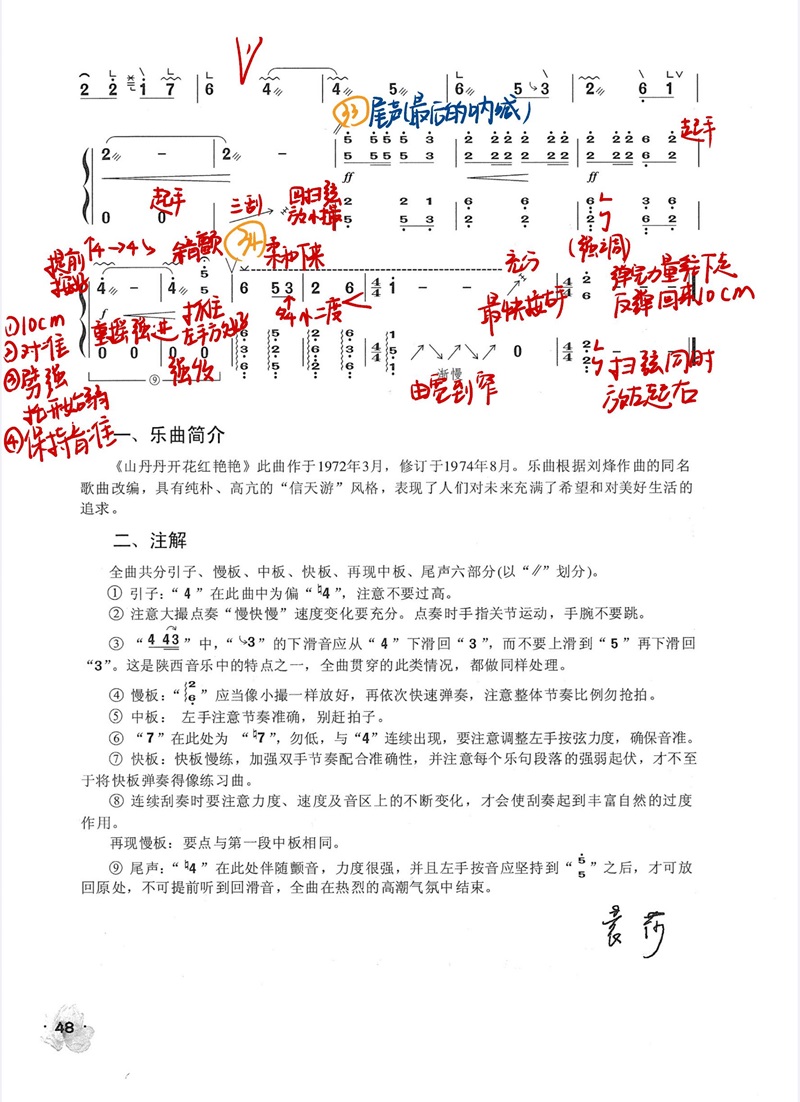 2 2 1 7 6 4 4 5 6 5 3 2 6 1
33 尾声(最后的呐喊)
2 - 2 -
ff ff
起手
起手 三刮 回扫弦
0 0
(强调)
提前 4→4 余音颤 34 柔和下来 充分 弹完力量往下走
反弹回来10cm
4 - 4 - 6 5 3 2 6 4/4 1 - - - 4/4
①10cm 重摇强进 抓住 大小二度 最快按右手
②对准 左手方
③劈强 0 0 0 0 强收 0 扫弦同时
⑨ 渐慢 放左起右
由宽到窄
④保持音准
一、乐曲简介
《山丹丹开花红艳艳》此曲作于1972年3月，修订于1974年8月。乐曲根据刘烽作曲的同名
歌曲改编，具有纯朴、高亢的“信天游”风格，表现了人们对未来充满了希望和对美好生活的
追求。
二、注解
全曲共分引子、慢板、中板、快板、再现中板、尾声六部分(以“∥”划分)。
① 引子：“4”在此曲中为偏“♮4”，注意不要过高。
② 注意大撮点奏“慢快慢”速度变化要充分。点奏时手指关节运动，手腕不要跳。
③ “4 43”中，“⤷3”的下滑音应从“4”下滑回“3”，而不要上滑到“5”再下滑回
“3”。这是陕西音乐中的特点之一，全曲贯穿的此类情况，都做同样处理。
④ 慢板：“2 6”应当像小撮一样放好，再依次快速弹奏，注意整体节奏比例勿抢拍。
⑤ 中板： 左手注意节奏准确，别赶拍子。
⑥ “7”在此处为 “♮7”，勿低，与“4”连续出现，要注意调整左手按弦力度，确保音准。
⑦ 快板：快板慢练，加强双手节奏配合准确性，并注意每个乐句段落的强弱起伏，才不至
于将快板弹奏得像练习曲。
⑧ 连续刮奏时要注意力度、速度及音区上的不断变化，才会使刮奏起到丰富自然的过度
作用。
再现慢板：要点与第一段中板相同。
⑨ 尾声：“♮4”在此处伴随颤音，力度很强，并且左手按音应坚持到“5 5”之后，才可放
回原处，不可提前听到回滑音，全曲在热烈的高潮气氛中结束。
袁莎
· 48 ·